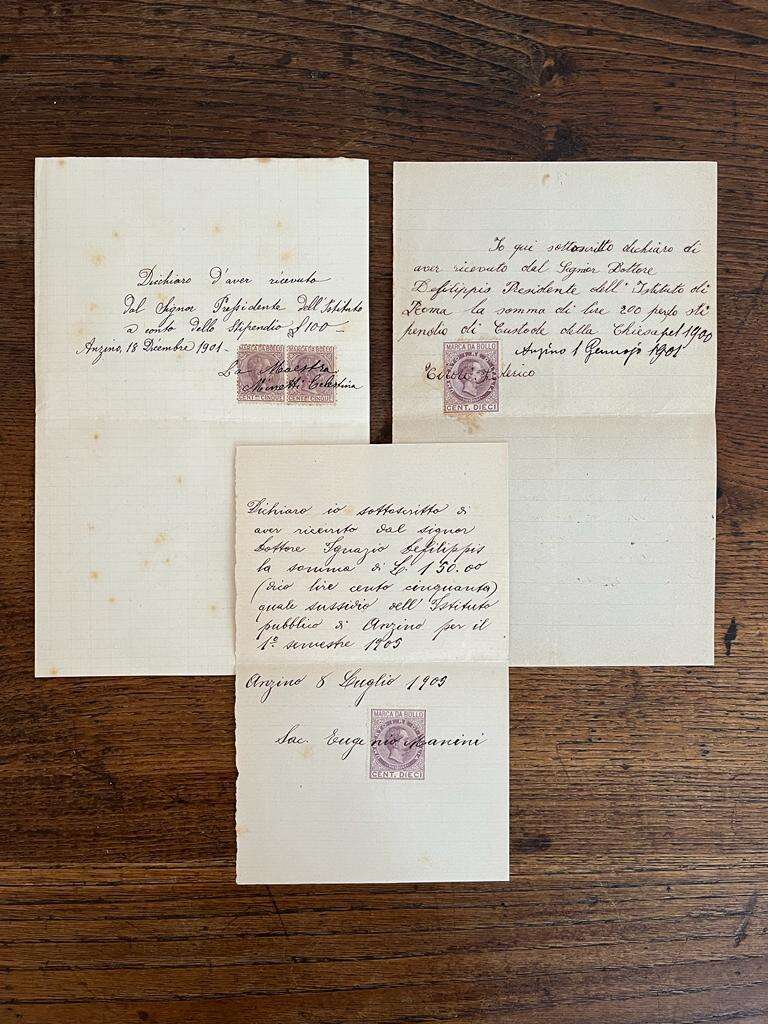 Dichiaro d'aver ricevuto
dal Signor Pressidente dell'Istituto
a conto dello Stipendio £100
Anzino, 18 Dicembre 1901-
MARCA DA BOLLO MARCA DA BOLLO
La Maestra
Celestina
CENT. CINQUE CENT. CINQUE
Io qui sottoscritto dichiaro di
aver ricevuto dal Signor Dottore
Defilippis Presidente dell'Istituto di
Roma la somma di lire 200 per lo sti
pendio di Custode della Chiesa pel 1900
Anzino 1 Gennajo 1901
MARCA DA BOLLO
CENT. DIECI
Dichiaro io sottoscritto di
aver ricevuto dal signor
Dottore Ignazio Defilippis
la somma di L. 150.00
(dico lire cento cinquanta)
quale sussidio dell'Istituto
pubblico di Anzino per il
1º semestre 1903
Anzino 8 Luglio 1903
MARCA DA BOLLO
Sac. Eugenio Manini
CENT. DIECI